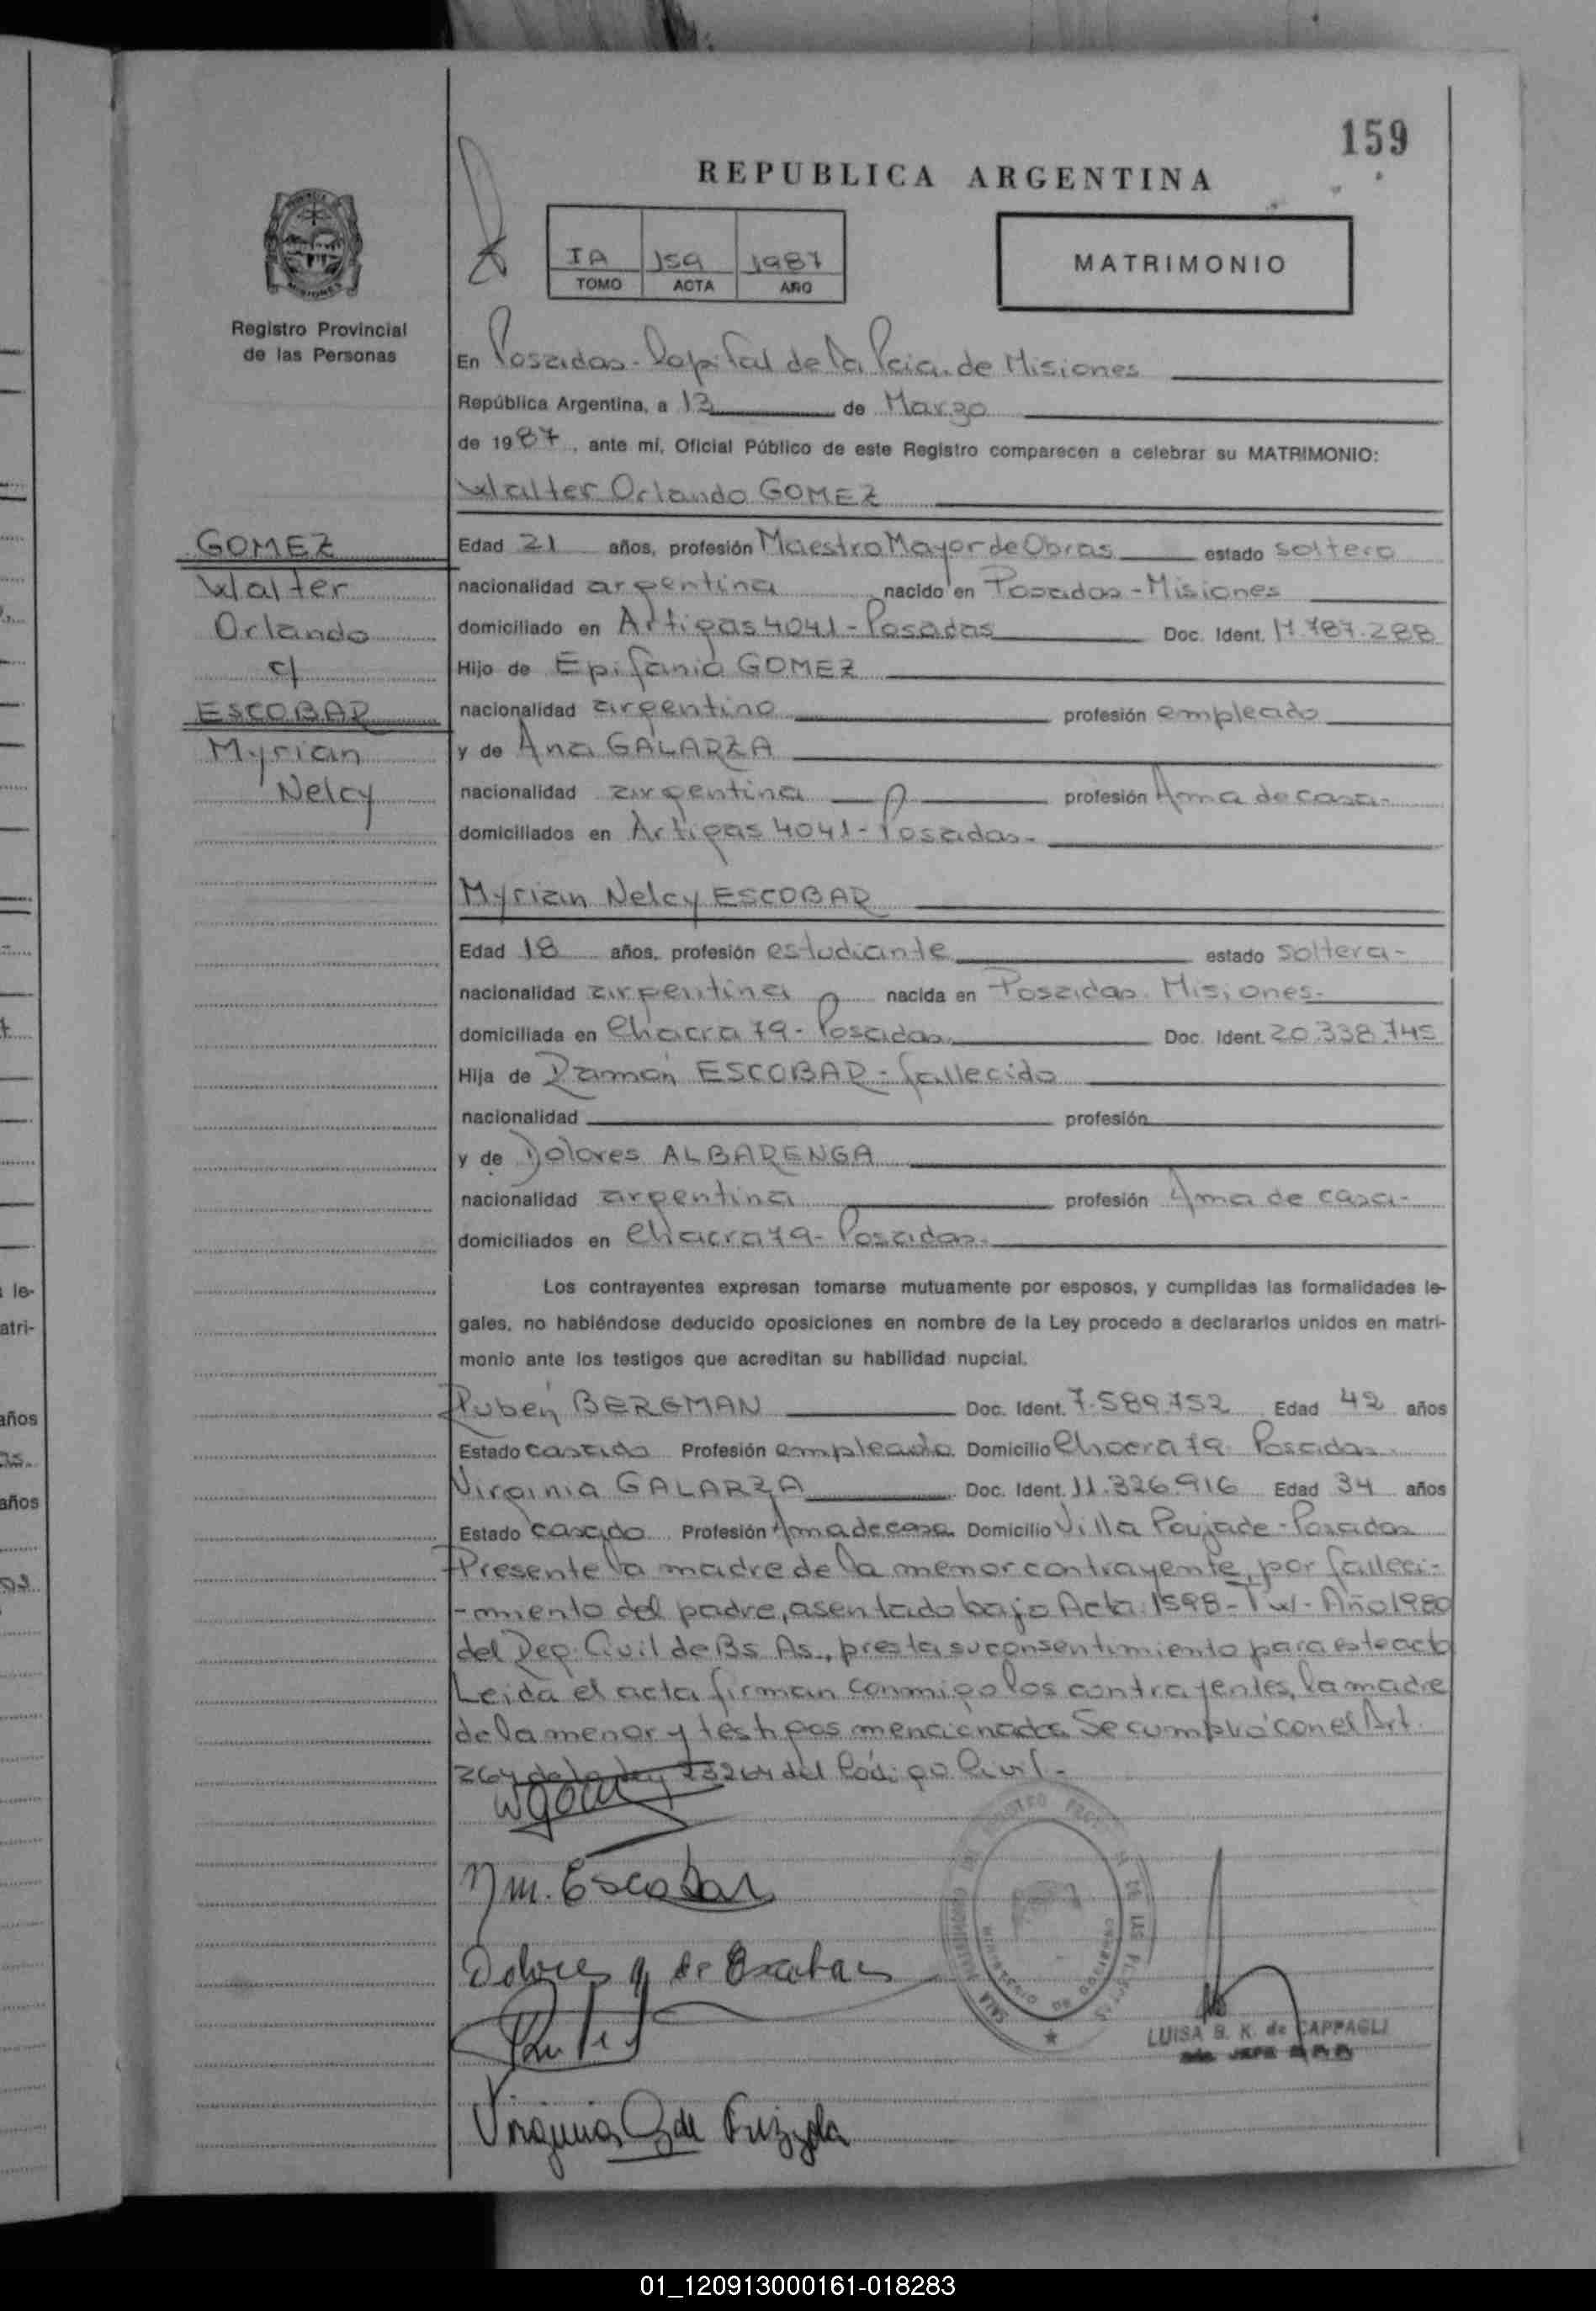 159
REPUBLICA ARGENTINA
IA 159 1987
TOMO ACTA AÑO
MATRIMONIO
Registro Provincial
de las Personas
En Posadas - Capital de la Pcia. de Misiones
República Argentina, a 13 de Marzo
de 1987, ante mí, Oficial Público de este Registro comparecen a celebrar su MATRIMONIO:
Walter Orlando GOMEZ
GOMEZ
Walter
Orlando
c/
ESCOBAR
Myrian
Nelcy
Edad 21 años, profesión Maestro Mayor de Obras estado soltero
nacionalidad argentina nacido en Posadas - Misiones
domiciliado en Artigas 4041 - Posadas Doc. Ident. 17.787.288
Hijo de Epifanio GOMEZ
nacionalidad argentino profesión empleado
y de Ana GALARZA
nacionalidad argentina profesión Ama de casa-
domiciliados en Artigas 4041 - Posadas-
Myrian Nelcy ESCOBAR
Edad 18 años, profesión estudiante estado soltera-
nacionalidad argentina nacida en Posadas Misiones-
domiciliada en Chacra 79 - Posadas Doc. Ident. 20.338.745
Hija de Ramón ESCOBAR - fallecido
nacionalidad profesión
y de Dolores ALBARENGA
nacionalidad argentina profesión Ama de casa-
domiciliados en Chacra 79 - Posadas-
Los contrayentes expresan tomarse mutuamente por esposos, y cumplidas las formalidades le-
gales, no habiéndose deducido oposiciones en nombre de la Ley procedo a declararlos unidos en matri-
monio ante los testigos que acreditan su habilidad nupcial.
Rubén BERGMAN Doc. Ident. 7.589.752 Edad 42 años
Estado casado Profesión empleado Domicilio Chacra 79 Posadas
Virginia GALARZA Doc. Ident. 11.326.916 Edad 34 años
Estado casado Profesión Ama de casa Domicilio Villa Poujade - Posadas
Presente la madre de la menor contrayente, por falleci-
-miento del padre, asentado bajo Acta 1598 - Año 1980
del Reg. Civil de Bs. As., presta su consentimiento para este acto
Leida el acta firman conmigo los contrayentes, la madre
de la menor y testigos mencionados. Se cumplió con el Art.
264 de la Ley 23264 del Código Civil-
M. Escobar
Dolores de Escobar
Virginia G de
LUISA B. K. de CAPPAGLI
01_120913000161-018283